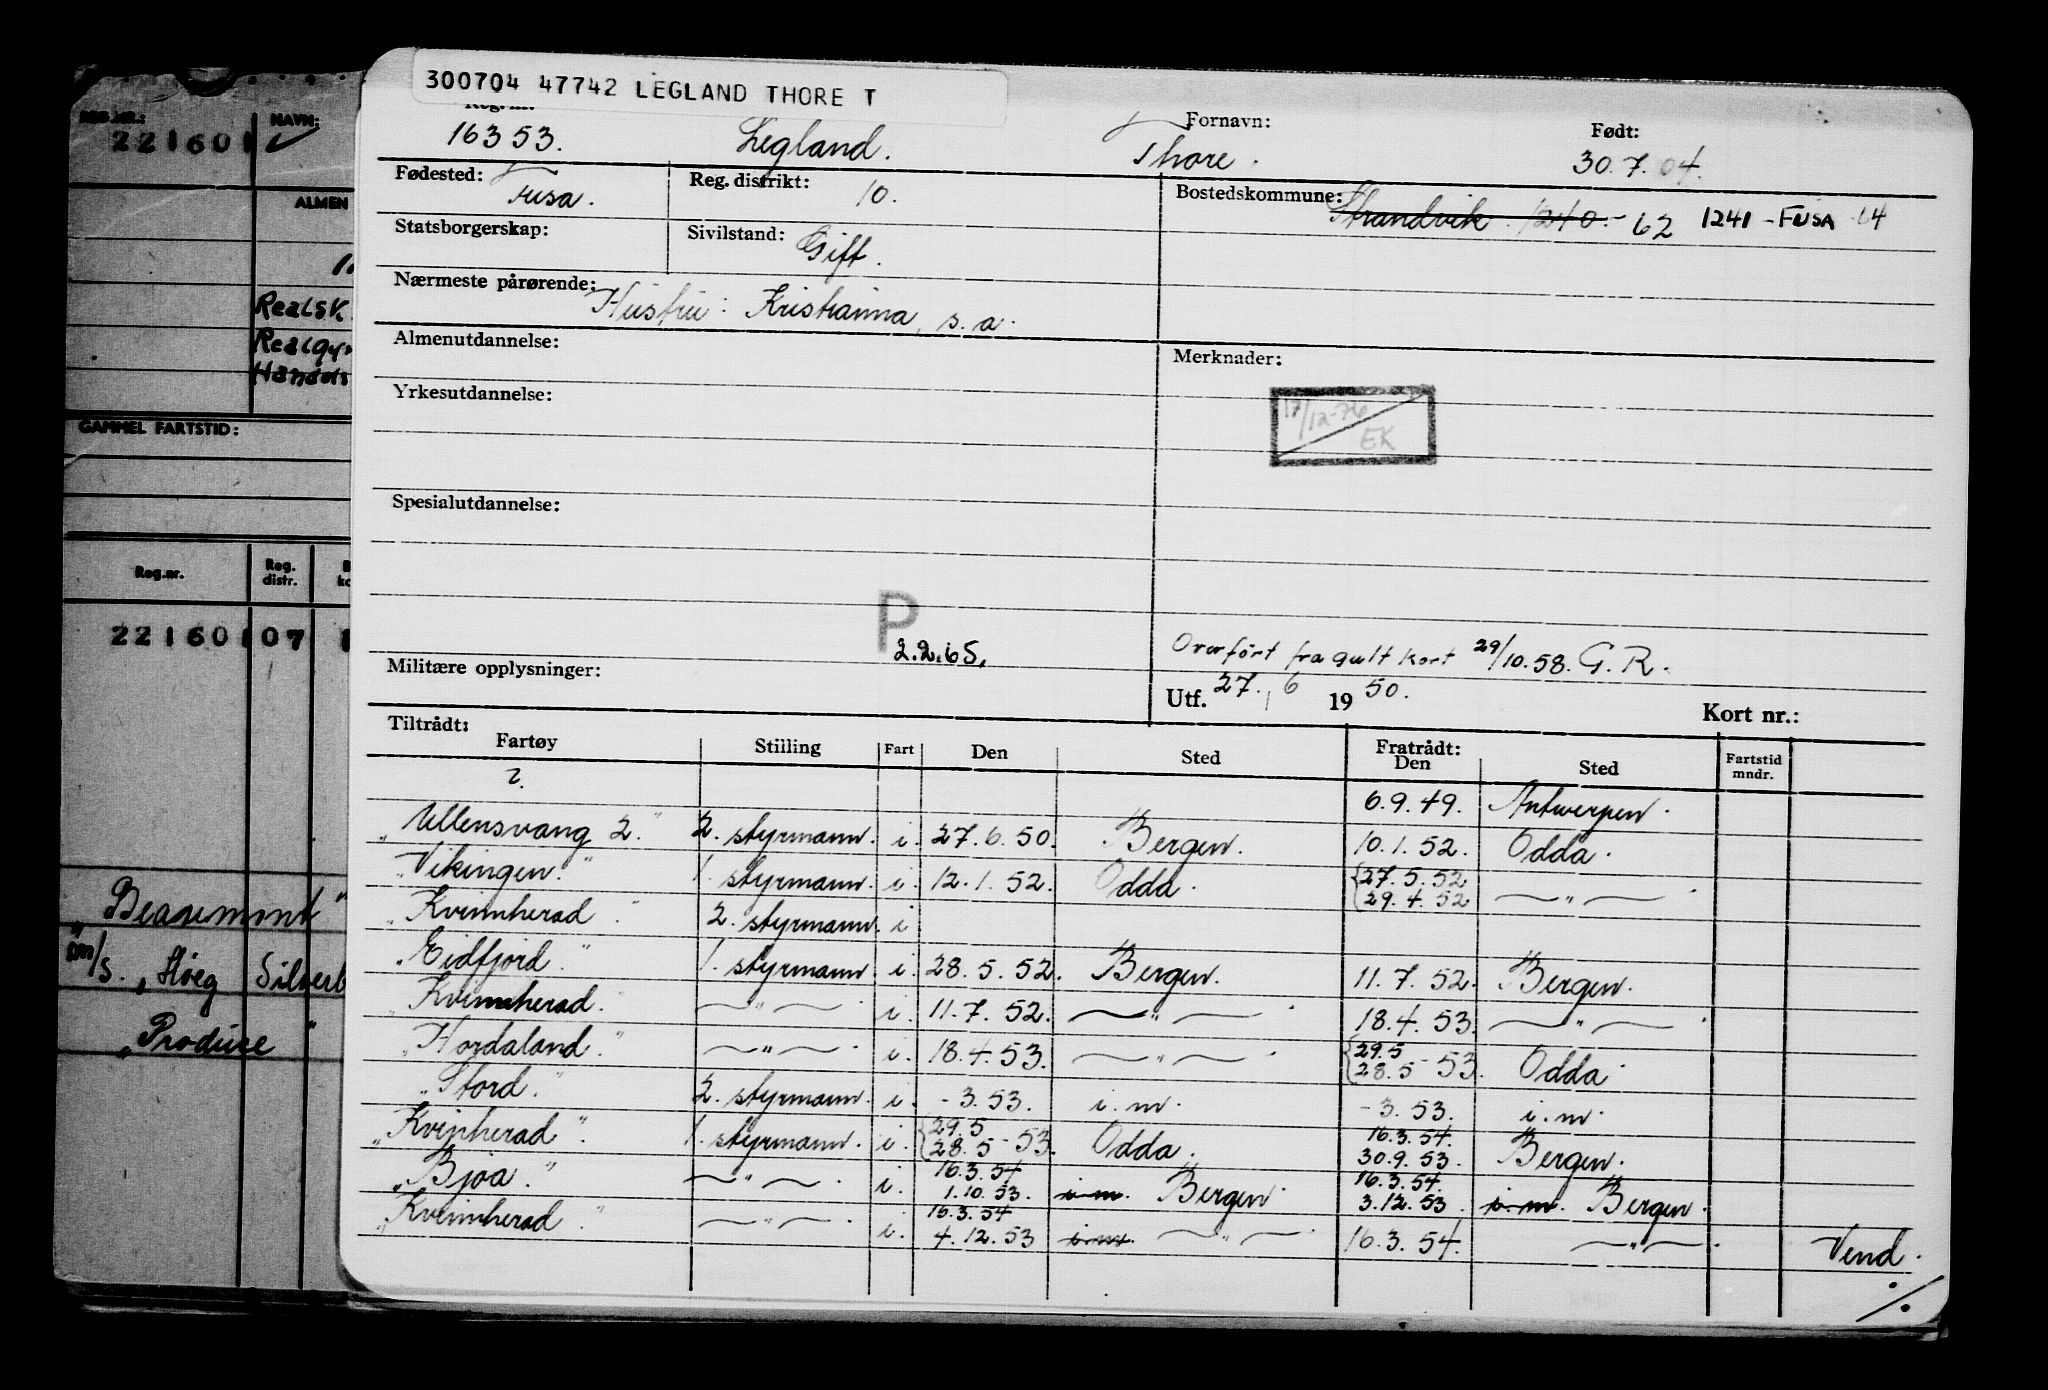 300704 47742 LEGLAND THORE T
Reg. nr. Fornavn: Født:
16353. Legland. Thore. 30.7.04.
Fødested: Fusa. Reg. distrikt: 10. Bostedskommune: Strandvik. 1240. - 62 1241 - FUSA 64
Statsborgerskap: Sivilstand: Gift.
Nærmeste pårørende: Hustru: Kristianna, s.a.
Almenutdannelse: Merknader:
Yrkesutdannelse: 17/12-76 EK
Spesialutdannelse:
P
2.2.65. Overført fra gult kort 29/10.58. G.R.
Militære opplysninger: Utf. 27. 6 1950. Kort nr.:
Tiltrådt: Fratrådt:
Fartøy Stilling Fart Den Sted Den Sted Fartstid mndr.
? 6.9.49. Antwerpen.
"Ullensvang 2." 2. styrmann. i. 27.6.50. Bergen. 10.1.52. Odda.
"Vikingen." 1. styrmann. i. 12.1.52. Odda. {27.5.52 29.4.52 — " —
"Kvinnherad." 2. styrmann. i
"Eidfjord." 1. styrmann. i. 28.5.52. Bergen. 11.7.52. Bergen.
"Kvinnherad." — " — i. 11.7.52. — " — 18.4.53. — " —
"Hordaland." — " — i. 18.4.53. — " — {29.5 28.5 - 53. Odda.
"Stord." 2. styrmann. i. - 3.53. i.m. - 3.53. i.m.
"Kvinherad." 1. styrmann. i. {29.5 28.5 - 53. Odda. 16.3.54. 30.9.53. Bergen.
"Bjoa." — " — i. 16.3.54 1.10.53. i.m. Bergen. 16.3.54. 3.12.53. i.m. Bergen.
"Kvinnherad." — " — i. 16.3.54 4.12.53 i.m. — " — 16.3.54. — " — Vend.
./.
REG.NR.: NAVN:
221601
ALMEN
Realsk.
Realgy
Handels
GAMMEL FARTSTID:
Reg.nr. Reg. distr.
221601 07 1
"Beaumont"
m/s. "Høeg Silverb
"Produce"